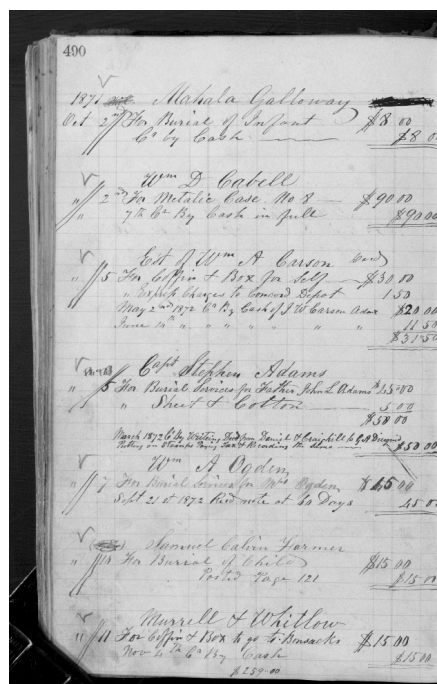 490
1871 Mahala Galloway
Oct 2nd For Burial of Infant $8 00
Cr by Cash $8 0
Wm D Cabell
" 2nd For Metalic Case No 8 $90.00
" 7th Cr By Cash in full $90.00
Est of Wm A Carson Decd
" 5 For Coffin & Box for Self $30.00
" Express Charges to Concord Depot 1 50
May 2nd 1872 Cr By Cash of J W Carson Admr $20 00
June 14th " " " " " " 11 50
$31.50
Capt Stephen Adams
" 5 For Burial Services for Father John L Adams $45.00
" Sheet & Cotton 5 00
$50 00
March 1872 Cr By Writing Deed from Daniel & Craighill to
Putting on Stamps Paying Tax & Recording the Same $50 00
Wm A Ogden
" 7 For Burial Services for Mrs Ogden $45 00
Sept 21st 1872 Recd note at 60 Days 45 0
Samuel Calvin Farmer
" 10 For Burial of Child $15 00
Posted Page 121 $15 00
Murrell & Whitlow
" 11 For Coffin & Box to go to Bonsacks $15 00
Nov 4th Cr By Cash $15 00
$259.00